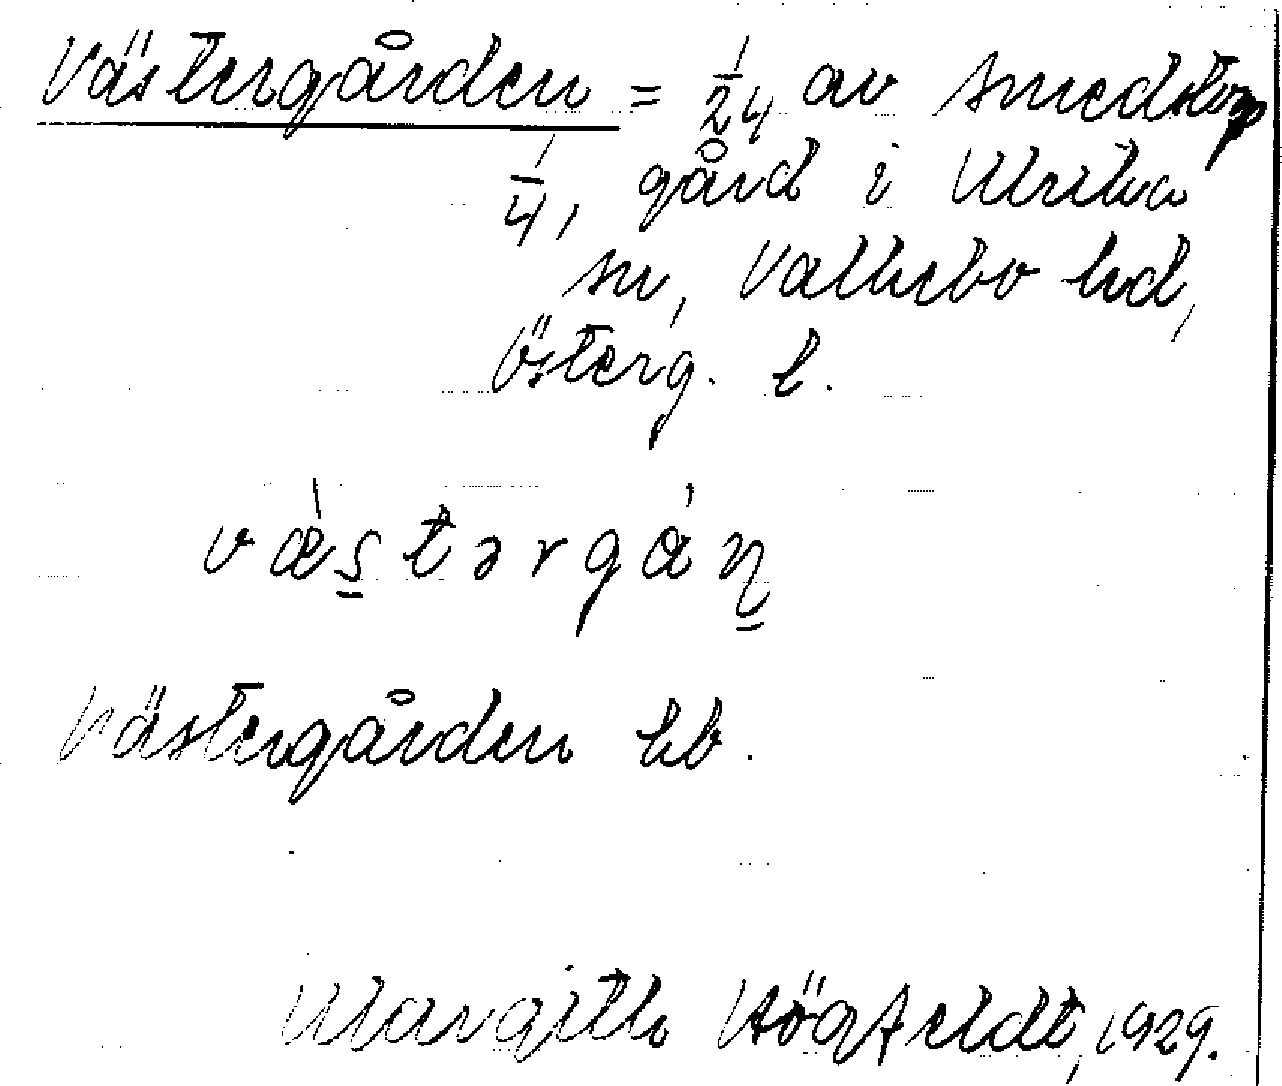 Västergården = 1/24 av Smedstorp
1/4, gård i Ulrika
sn, Vallebo hd,
Österg. l.
væ̀stərgá̊ṇ
Västergården kb.
Margith Högfeldt, 1929.